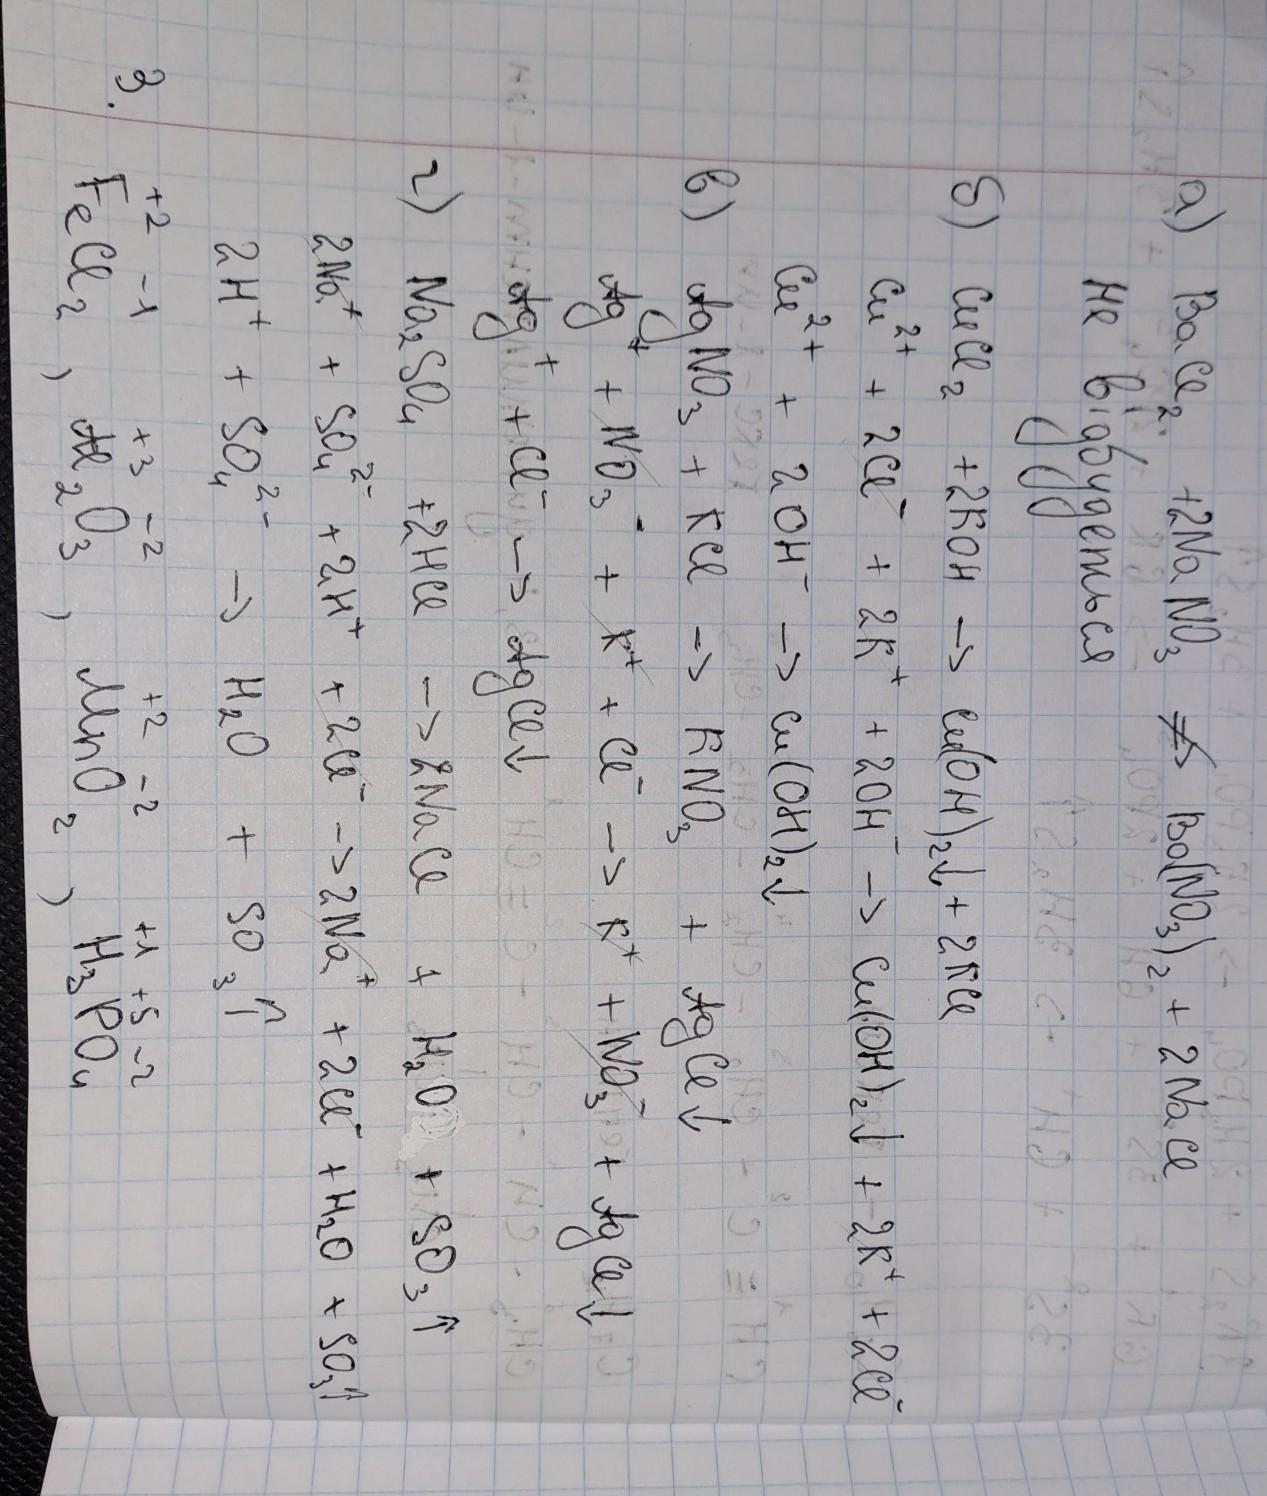 а) BaCl₂ + 2NaNO₃ ↛ Ba(NO₃)₂ + 2NaCl
Не відбудеться
б) CuCl₂ + 2KOH → Cu(OH)₂↓ + 2KCl
Cu²⁺ + 2Cl⁻ + 2K⁺ + 2OH⁻ → Cu(OH)₂↓ + 2K⁺ + 2Cl⁻
Cu²⁺ + 2OH⁻ → Cu(OH)₂↓
в) AgNO₃ + KCl → KNO₃ + AgCl↓
Ag⁺ + NO₃⁻ + K⁺ + Cl⁻ → K⁺ + NO₃⁻ + AgCl↓
Ag⁺ + Cl⁻ → AgCl↓
г) Na₂SO₄ + 2HCl → 2NaCl + H₂O + SO₃↑
2Na⁺ + SO₄²⁻ + 2H⁺ + 2Cl⁻ → 2Na⁺ + 2Cl⁻ + H₂O + SO₃↑
2H⁺ + SO₄²⁻ → H₂O + SO₃↑
+2 -1 +3 -2 +2 -2 +1 +5 -2
3. FeCl₂, Al₂O₃, MnO₂, H₃PO₄